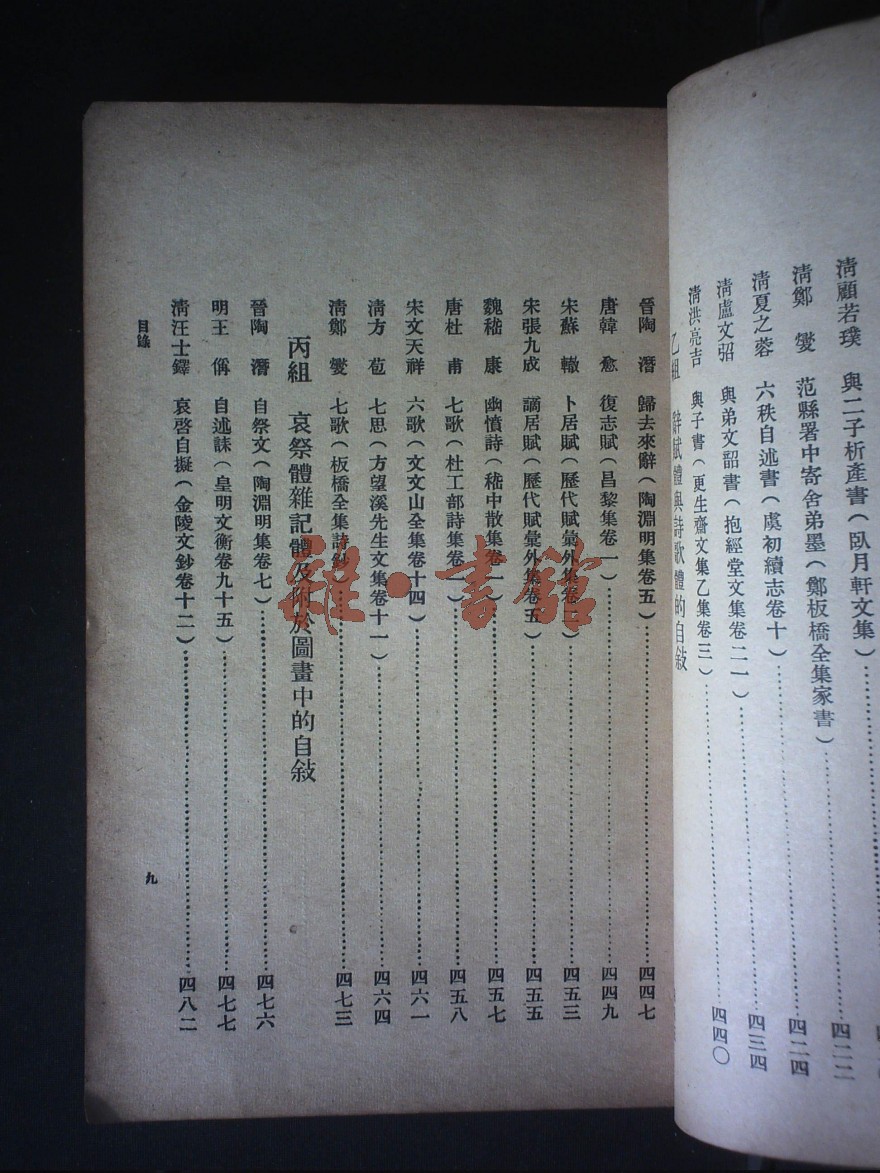 清顧若璞　與二子析產書（臥月軒文集）………四二二
清鄭　燮　范縣署中寄舍弟墨（鄭板橋全集家書）………四二四
清夏之蓉　六秩自述書（虞初續志卷十）………四三四
清盧文弨　與弟文韶書（抱經堂文集卷二一）………四四〇
清洪亮吉　與子書（更生齋文集乙集卷三）………
乙組　辭賦體與詩歌體的自敍
晉陶　潛　歸去來辭（陶淵明集卷五）………四四七
唐韓　愈　復志賦（昌黎集卷一）………四四九
宋蘇　轍　卜居賦（歷代賦彙外集卷　）………四五三
宋張九成　謫居賦（歷代賦彙外集卷五）………四五五
魏嵇　康　幽憤詩（嵇中散集卷一）………四五七
唐杜　甫　七歌（杜工部詩集卷　）………四五八
宋文天祥　六歌（文文山全集卷十四）………四六一
清方　苞　七思（方望溪先生文集卷十一）………四六四
清鄭　燮　七歌（板橋全集詩鈔）………四七三
丙組　哀祭體雜記體及附於圖畫中的自敍
晉陶　潛　自祭文（陶淵明集卷七）………四七六
明王　偁　自述誄（皇明文衡卷九十五）………四七七
清汪士鐸　哀啓自擬（金陵文鈔卷十二）………四八二
目錄
九
雜·書館